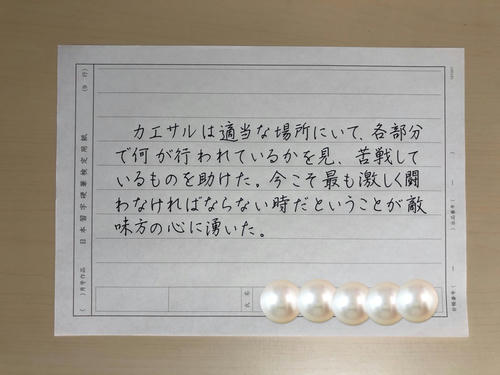 カエサルは適当な場所にいて、各部分
で何が行われているかを見、苦戦して
いるものを助けた。今こそ最も激しく闘
わなければならない時だということが敵
味方の心に湧いた。
日本習字硬筆検定用紙
(9行)
( )月号作品
氏名